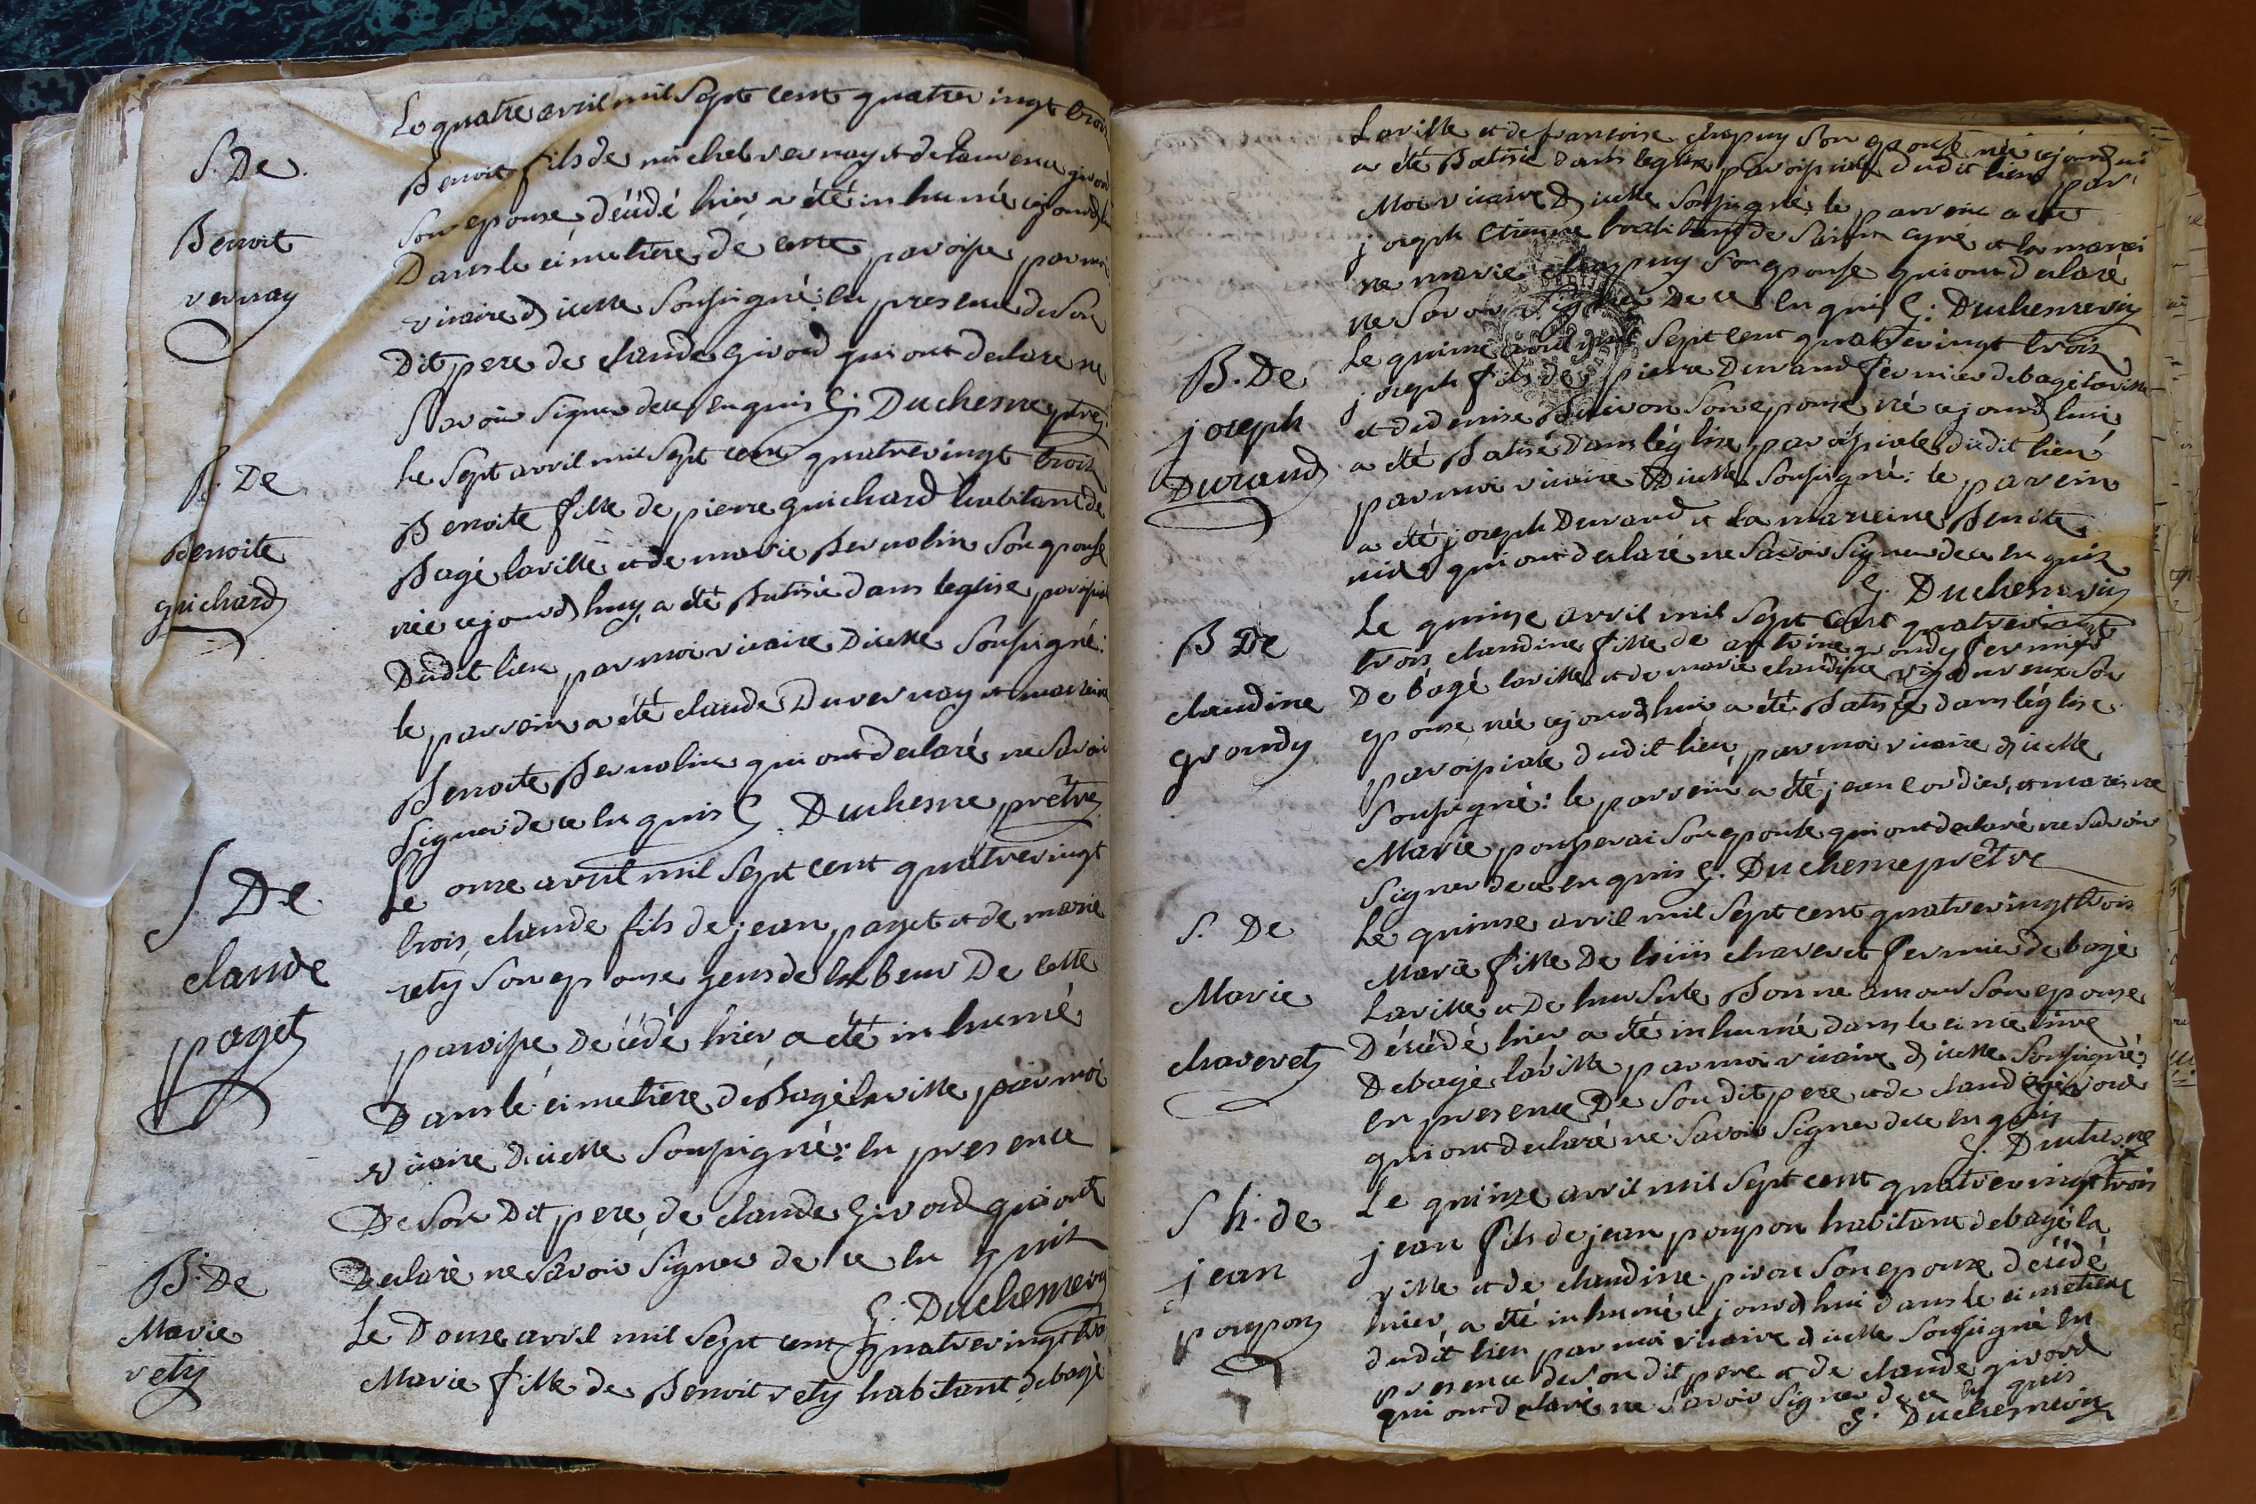 Le quatre avril mil Sept cent quatre vingt trois
S. De.
Benoit
vernay
Benoit fils de michel vernay et de Laurence givord
Son epouse, décédé hier a été inhumé cejourd'hui
Dans le cimetière de cette paroisse par moi
vicaire d'icelle Soussigné: En presence de Son
Dit pere de claude givord qui ont declaré ne
Savoir signer de ce enquis G: Duchesne ptre
B. De
Benoite
guichard
Le Sept avril mil Sept cent quatre vingt trois
Benoite fille de pierre guichard habitant de
Bagé laville et de marie Bernolin Son epouse
née cejourd'huy, a été Batisée dans leglise paroissiale
Dudit lieu par moi vicaire D'icelle Soussigné:
le parrein a été claude Duvernay et marreine
Benoite Bernolin qui ont declaré ne Savoir
Signer de ce Enquis G. Duchesne prêtre
S. De
claude
paget
Le onze avril mil Sept cent quatre vingt
trois, claude fils de jean paget et de marie
rety Son epouse gens de labeur De cette
paroisse Décédé hier a été inhumé
Dans le cimetière de Bagé laville par moi
vicaire D'icelle Soussigné: En presence
De Son Dit pere, de claude Givord qui ont
Declaré ne Savoir Signer de ce En quis
G: Duchesne vic
B. De
Marie
rety
Le Douze avril mil Sept cent quatre vingt trois
Marie fille de Benoit rety habitant de bagé
Laville et de francoise chapuy Son epouse née cejourd'hui
a été Batisée dans leglise paroissiale dudit lieu par
Moi vicaire D'icelle Soussigné: le parrein a été
joseph Etienne habitant de Saint Cyre et la marrei
ne marie chapuy Son epouse qui ont declaré
ne Savoir signer De ce Enquis G: Duchesne vic
B. De
joseph
Durand
Le quinze avril mil Sept cent quatre vingt trois
joseph fils de pierre Durand fermier de bagé laville
et de denise Son epouse né cejourd'hui
a été Batisé Dans léglise paroissiale dudit lieu
par moi vicaire D'icelle Soussigné: le parrein
a été joseph Durand et la marreine Benoite
qui ont declaré ne Savoir Signer de ce En quis
G. Duchesne vic
B De
claudine
grondy
Le quinze avril mil Sept cent quatre vingt
trois claudine fille de antoine grondy fermier
De bagé laville et de marie claudine Son
epouse née cejourd'hui a été Batisée dans léglise
paroissiale dudit lieu, par moi vicaire d'icelle
Soussigné: le parrein a été jean cordier, et marreine
Marie Son epouse qui ont declaré ne Savoir
Signer de ce enquis G: Duchesne prêtre
S. De
Marie
chaveret
Le quinze avril mil Sept cent quatre vingt trois
Marie fille De loüis chaveret fermier de bagé
Laville et De hursule Bonne amour Son epouse
Décédé hier a été inhumé dans le cimetiere
De bagé laville par moi vicaire d'icelle Soussigné
en presence De Son dit pere et de claude givord
qui ont declaré ne Savoir Signer de ce Enquis
G. Duchesne
S h. de
jean
poupon
Le quinze avril mil Sept cent quatre vingt trois
jean fils de jean poupon habitant de bagé la
ville et de claudine piron Son epouse décédé
hier, a été inhumé cejourd'hui dans le cimetiere
dudit lieu par moi vicaire d'icelle Soussigné En
presence de Son dit pere et de claude givord
qui ont declaré ne Savoir Signer de ce En quis
G: Duchesne vic